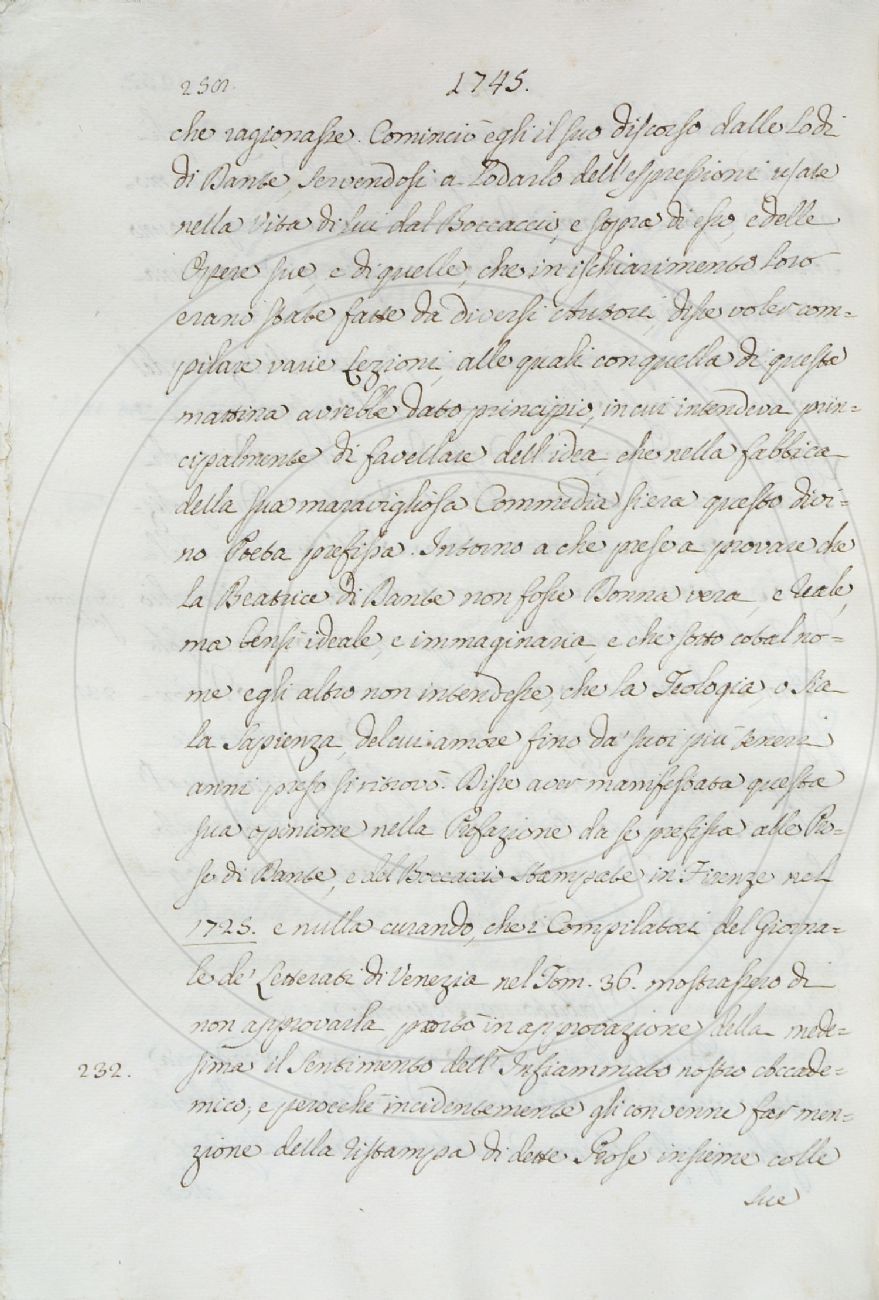 1745.
che ragionasse. Cominciò egli il suo discorso dalle Lodi
di Dante, servendosi a Lodarlo dell'espressioni usate
nella Vita di Lui dal Boccaccio, e sopra di esso, e delle
Opere sue, e di quelle, che in ischiarimento Loro
erano state fatte da diversi Autori, disse voler com=
pilare varie Lezioni, alle quali con quella di questa
mattina avrebbe dato principio, in cui intendeva prin=
cipalmente di favellare dell'idea, che nella fabbrica
della sua maravigliosa Commedia si era questo divi=
no Poeta prefissa. Intorno a che prese a provare che
la Beatrice di Dante non fosse Donna vera, e reale,
ma bensì ideale, e immaginaria, e che sotto cotal no=
me egli altro non intendesse, che la Teologia, o sia
la Sapienza, del cui amore fino da' suoi più teneri
anni preso si ritrovò. Disse aver manifestata questa
sua opinione nella Prefazione da se prefissa alle Pro=
se di Dante, e del Boccaccio stampate in Firenze nel
1723. e nulla curando, che i Compilatori del Giorna=
le de' Letterati di Venezia nel Tom. 36. mostrassero di
non approvarla portò in approvazione della mede=
232. sima il sentimento dell'Infiammato nostro Accade=
mico, e perocchè incidentemente gli convenne far men=
zione della ristampa di dette Prose insieme colle
sue